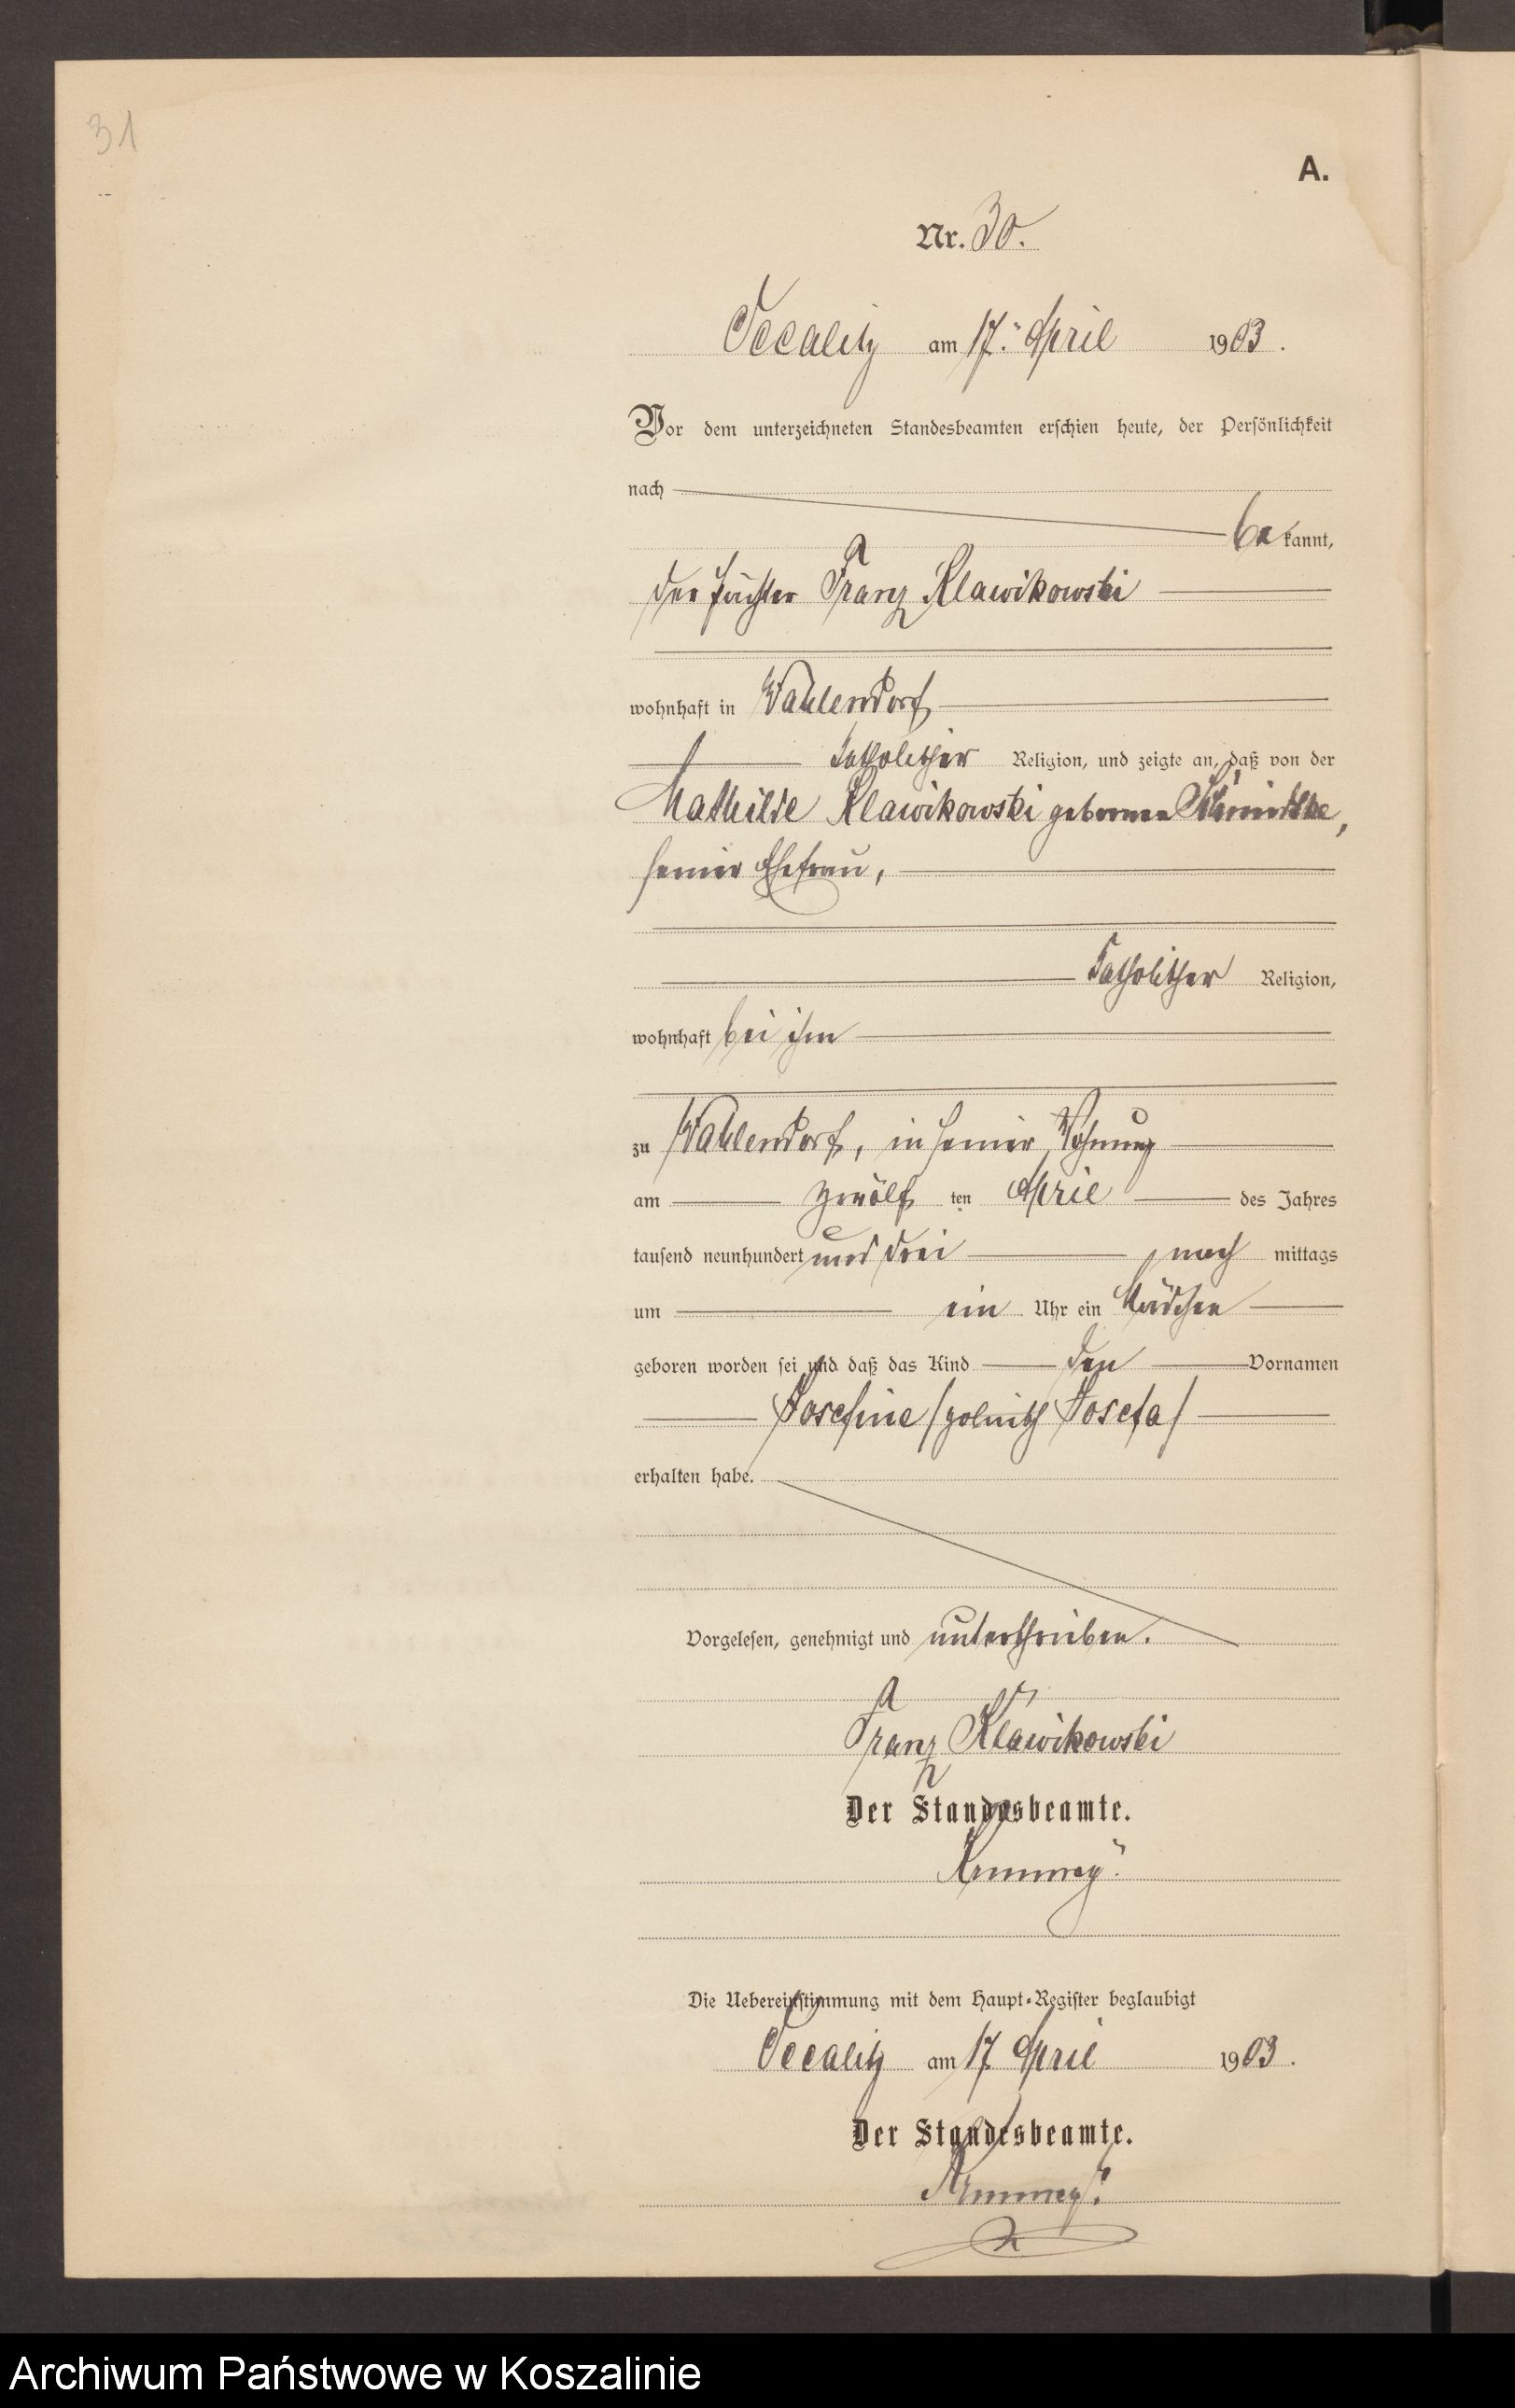 31
A.
Nr. 30.
am 17. April 1903.
Vor dem unterzeichneten Standesbeamten erschien heute, der Persönlichkeit
nach
be kannt,
der Pächter Franz Klawikowski
wohnhaft in Wahlendorf
katholischer Religion, und zeigte an, daß von der
Mathilde Klawikowski geborenen
seiner Ehefrau,
katholischer Religion,
wohnhaft bei ihm
zu Wahlendorf, in seiner Wohnung
am zwölf ten April des Jahres
tausend neunhundert und drei nach mittags
um ein Uhr ein Mädchen
geboren worden sei und daß das Kind den Vornamen
Josefine /polnisch Josefa/
erhalten habe.
Vorgelesen, genehmigt und unterschrieben.
Franz Klawikowski
Der Standesbeamte.
Die Uebereinstimmung mit dem Haupt-Register beglaubigt
am 17 April 1903.
Der Standesbeamte.
Archiwum Państwowe w Koszalinie